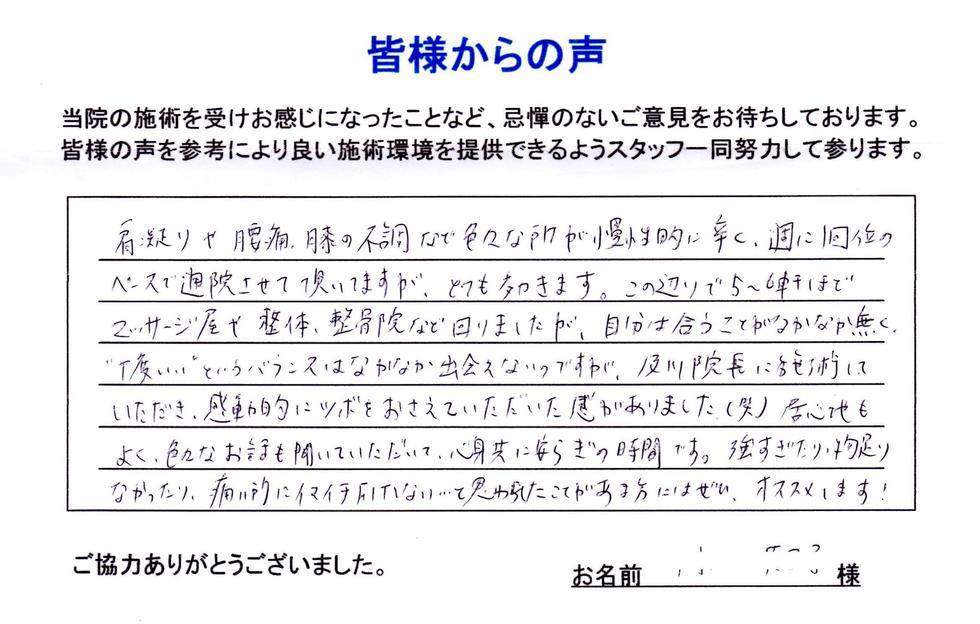 皆様からの声
当院の施術を受けお感じになったことなど、忌憚のないご意見をお待ちしております。
皆様の声を参考により良い施術環境を提供できるようスタッフ一同努力して参ります。
肩凝りや腰痛、膝の不調など色々な所が慢性的に辛く、週に1回位の
ペースで通院させて頂いてますが、とても効きます。この辺りで5～6軒ほど
マッサージ屋や整体、整骨院など回りましたが、自分は合うことがなかなか無く、
"丁度いい"というバランスはなかなか出会えないのですが、及川院長に施術して
いただき、感動的にツボをおさえていただいた感がありました(笑) 居心地も
よく、色々なお話も聞いていただいて、心身共に安らぎの時間です。強すぎたり、物足り
なかったり、痛い所にイマイチ届いない…と思われたことがある方にはぜひ、オススメします!
ご協力ありがとうございました。
お名前 様